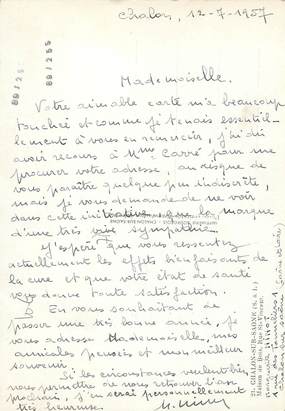 Chalon, 12-7-1957
Mademoiselle.
Votre aimable carte m'a beaucoup
touchée et comme je tenais essentiel-
lement à vous en remercier, j'ai dû
avoir recours à Mme Carré pour me
procurer votre adresse, au risque de
vous paraître quelque peu indiscrète,
mais je vous demande de ne voir
dans cette initiative que la marque
d'une très vive sympathie.
J'espère que vous ressentez
actuellement les effets bienfaisants de
la cure et que votre état de santé
vous donne toute satisfaction.
En vous souhaitant de
passer une très bonne année, je
vous adresse Mademoiselle, mes
amicales pensées et mon meilleur
souvenir.
Si les circonstances veulent bien
nous permettre de nous retrouver l'an
prochain, j'en serai personnellement
très heureuse.
CHALON-SUR-SAONE (S.-&-L.)
Maison de Bois, Rue St-Vincent